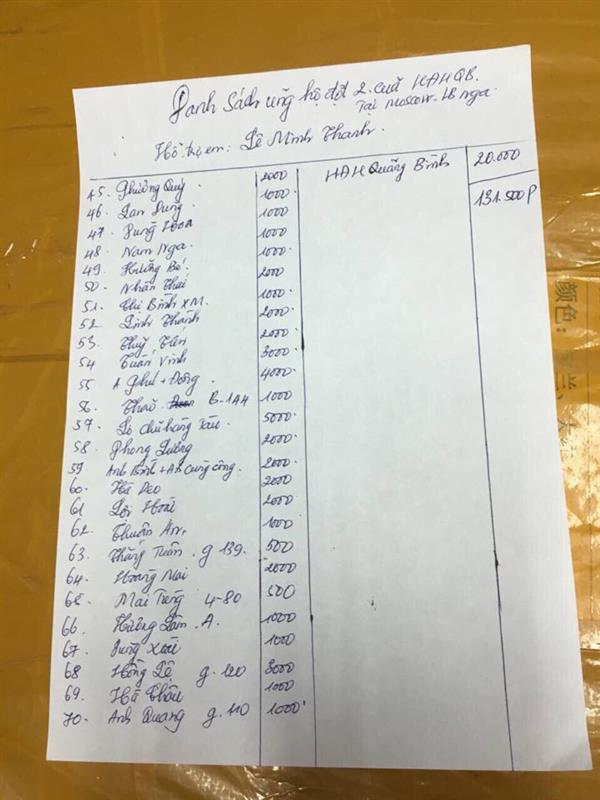 Danh sách ủng hộ đợt 2. của HAHQB.
Tại Moscow. LB Nga.
Hỗ trợ em: Lê Minh Thanh.
HAH Quảng Bình 20.000
131.500P
45. Phương Quý. 2000
46. Lan Dung. 1000
47. Dung Hoa 1000
48. Nam Nga. 1000
49. Hương Bé. 1000
50. Nhân Thái 2000
51. Chi Bình XM. 1000
52. Linh Thành 2000
53. Thuỷ Tiên 2000
54 Tuấn Vinh 3000
55 A Phú + Đông. 4000
56. Thao B-1A4 1000
57. Lo chủ hàng Tàu 5000
58. Phong Lường 2000
59. Anh Bình + An cung công. 2000
60. Hà Deo 2000
61 Lợi Hoài 2000
62. Thuân An. 1000
63. Thắng Tuân. g 139. 500
64. Hoàng Mai 2000
65. Mai Trọng 4-80 500
66. Hương Lâm. A. 1000
67. Dung Xoài 1000
68 Hồng Lệ g. 120 3000
69. Hà Châu 1000
70. Anh Quang g. 110 1000
颜色: